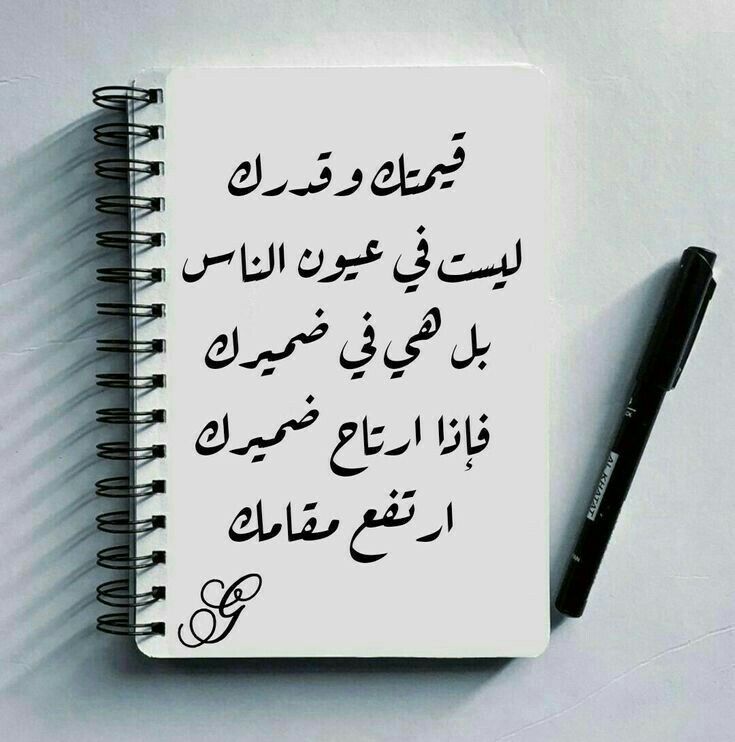 قيمتك و قدرك
ليست في عيون الناس
بل هي في ضميرك
فإذا ارتاح ضميرك
ارتفع مقامك
G
AL KHATAT